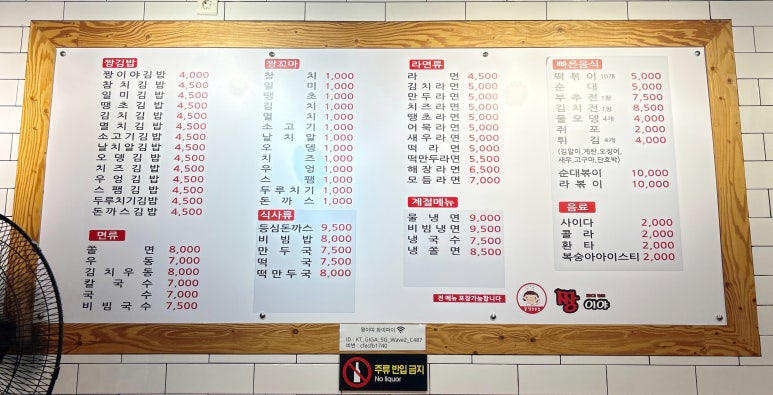 짱김밥
짱이야김밥 4,000
참치김밥 4,500
일미김밥 4,500
땡초김밥 4,500
김치김밥 4,500
멸치김밥 4,500
소고기김밥 4,500
날치알김밥 4,500
오뎅김밥 4,500
치즈김밥 4,500
우엉김밥 4,500
스팸김밥 4,500
두루치기김밥 4,500
돈까스김밥 4,500
면류
쫄면 8,000
우동 7,000
김치우동 8,000
칼국수 7,000
국수 7,000
비빔국수 7,500
짱꼬마
참치 1,000
일미 1,000
땡초 1,000
김치 1,000
멸치 1,000
소고기 1,000
날치알 1,000
오뎅 1,000
치즈 1,000
우엉 1,000
스팸 1,000
두루치기 1,000
돈까스 1,000
식사류
등심돈까스 9,500
비빔밥 8,000
만두국 7,500
떡국 7,500
떡만두국 8,000
라면류
라면 4,500
김치라면 5,000
만두라면 5,000
치즈라면 5,000
땡초라면 5,000
어묵라면 5,000
새우라면 5,000
떡라면 5,000
떡만두라면 5,500
해장라면 6,500
모듬라면 7,000
계절메뉴
물냉면 9,000
비빔냉면 9,500
냉국수 7,500
냉쫄면 8,500
전 메뉴 포장가능합니다
빠른음식
떡볶이 10개 5,000
순대 5,000
부추전 1장 7,500
김치전 1장 8,500
물오뎅 4개 4,000
쥐포 2,000
튀김 4개 4,000
(김말이,계란,오징어,
새우,고구마,단호박)
순대볶이 10,000
라볶이 10,000
음료
사이다 2,000
콜라 2,000
환타 2,000
복숭아아이스티 2,000
짱이야
짱이야 와이파이
ID : KT_GIGA_5G_Wave2_C487
비번 : cfecfb1740
주류 반입 금지
No liquor